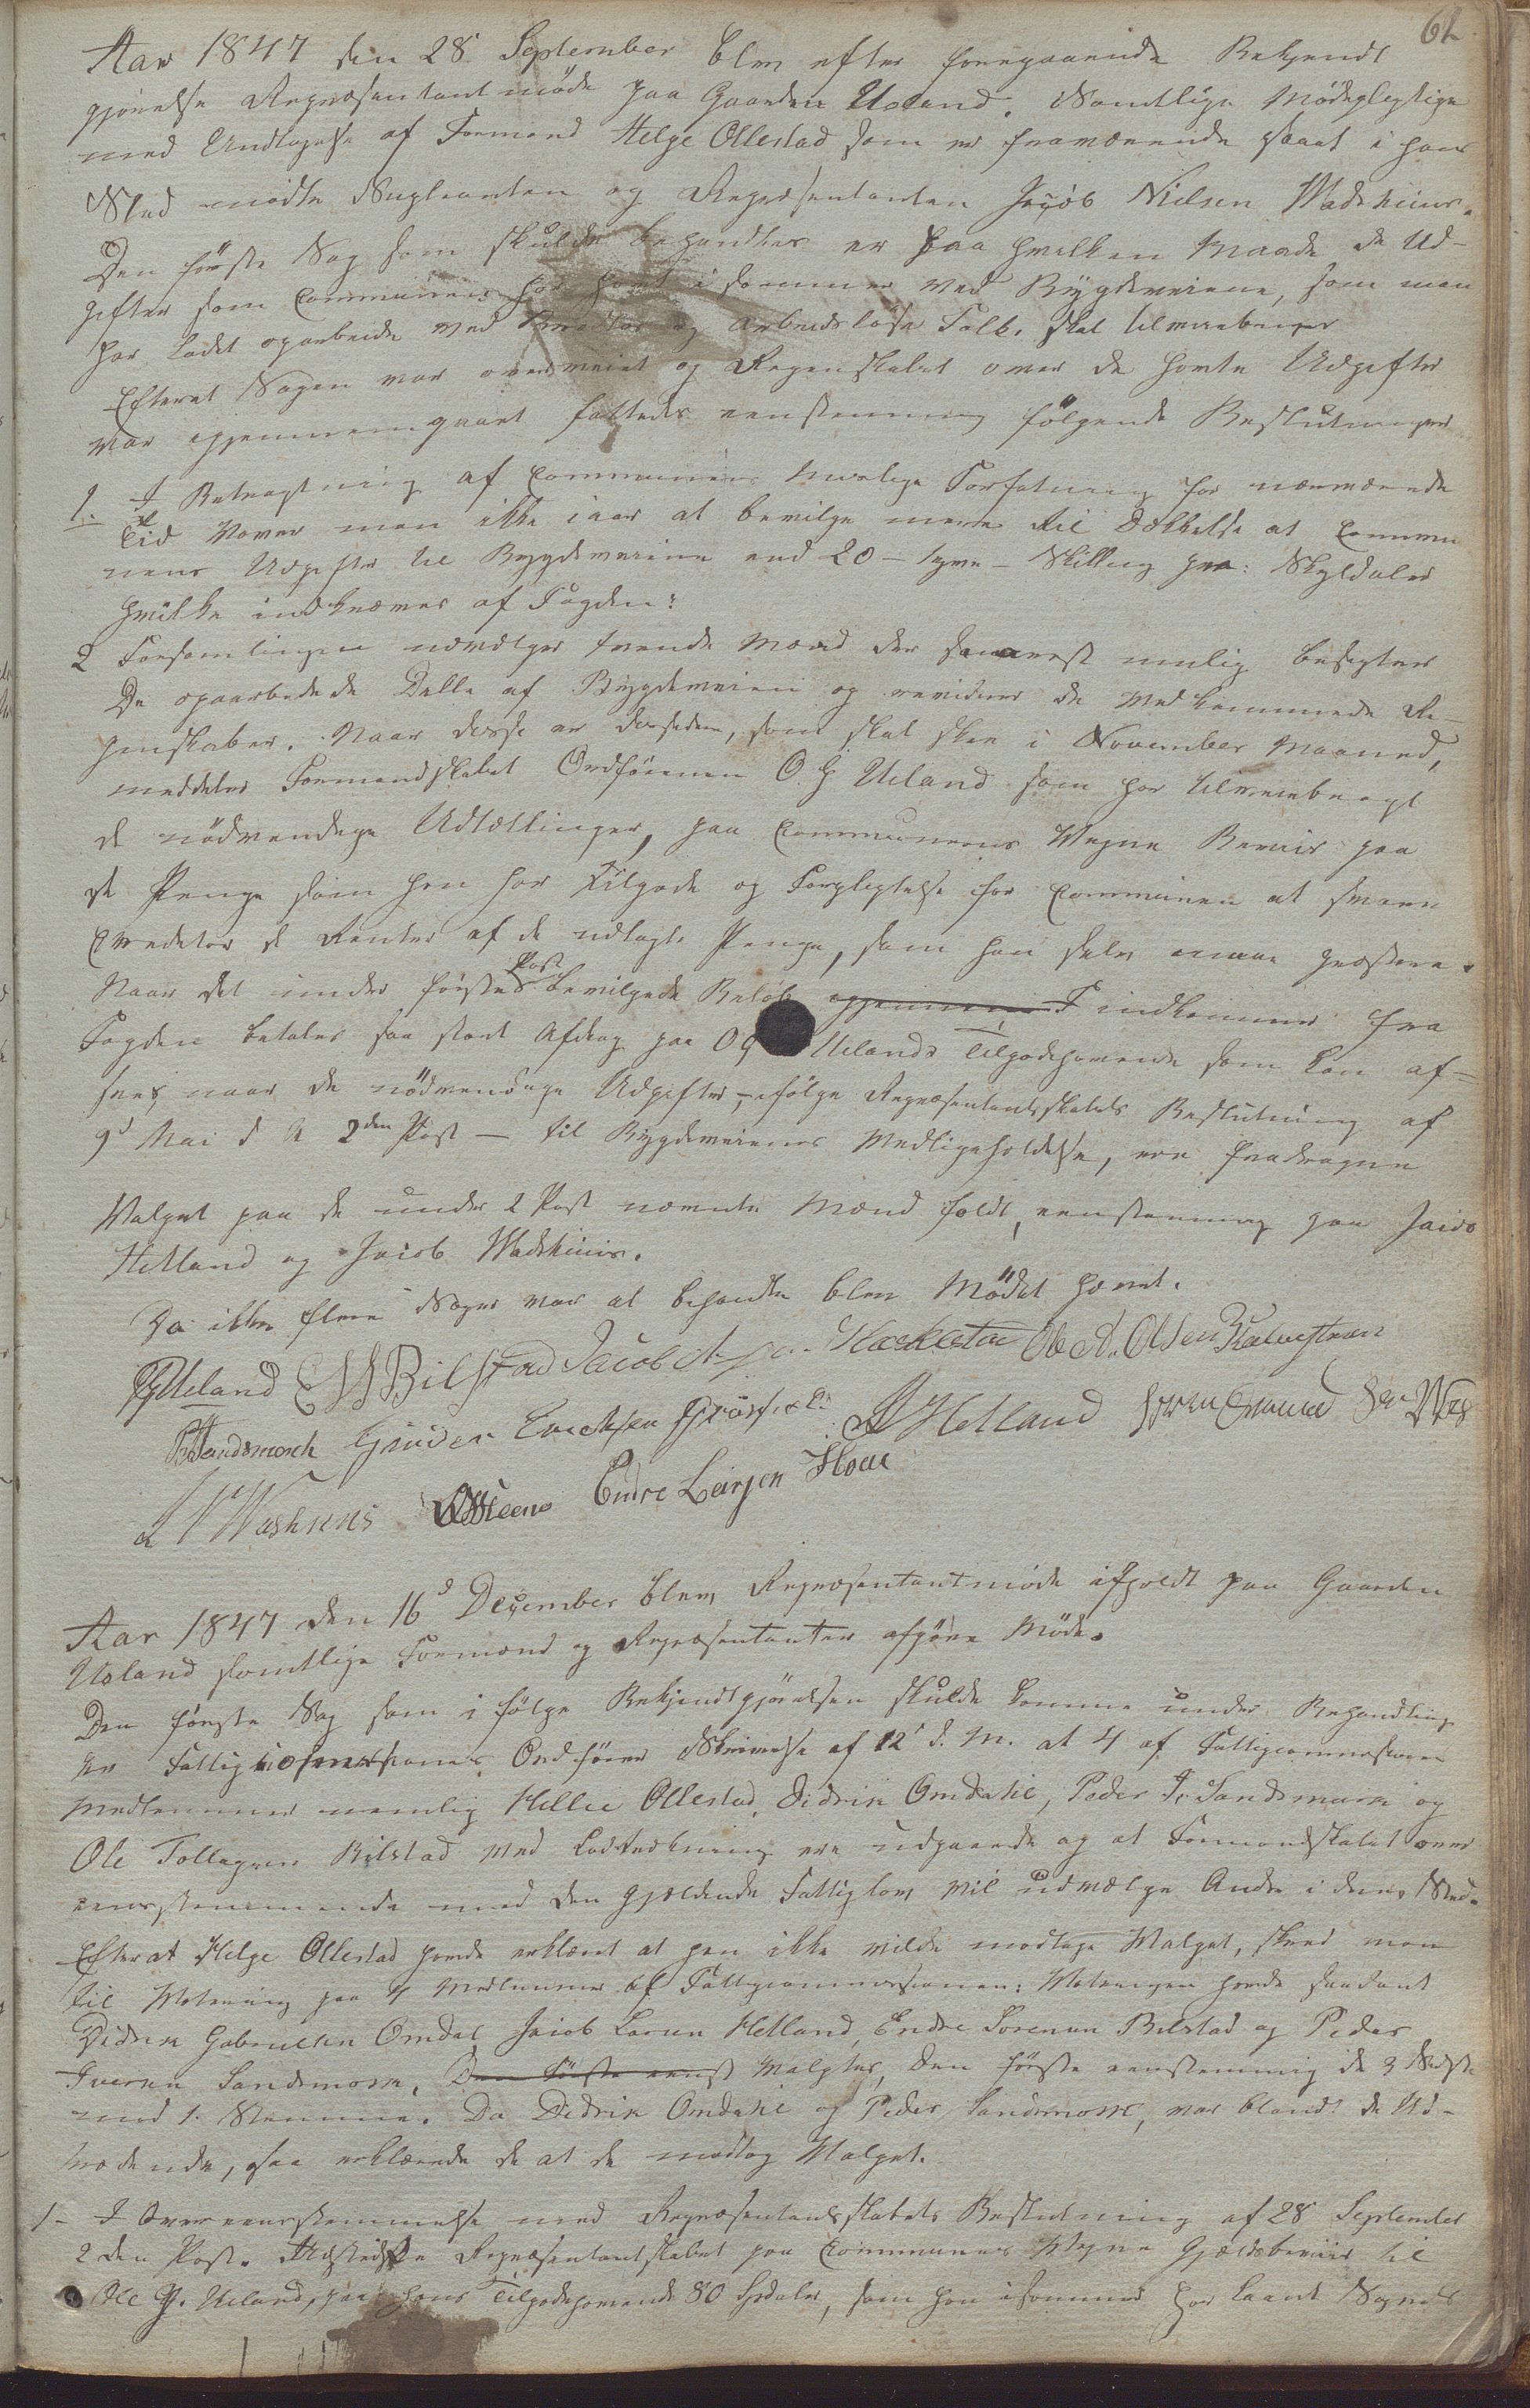 61.
Aar 1847 den 28 September blev efter foregaaende Bekjendt
gjørelse Repræsentantmøde paa Gaarden Ueland. Samtlige Mødepligtige
med Undtagelse af Formand Helge Ollestad som er fraværende samt i hans
Sted mødte Supleanten og Repræsentanten Jacob Nielsen Wadshuus.
Den første Sag som skulde behandles er paa hvilken Maade de Ud-
gifter som Communen har havt i sommer ved Bygdeveiene, som man
har ladt oparbeide ved Brødløs og Arbeidsløse Folk, skal tilveiebringes
Efterat Sagen var overveiet og Regenskabet over de havte Udgifter
var igjennemgaaet fattedes eenstemmig følgende Beslutninger
1. I Betragtning af Communens Farlige Forfatning for nærværende
Tid vover man ikke iaar at bevilge mere til Dækkelse af Commu
nens Udgifter til Bygdeveiene end 20 - tyve - Skilling pr: Skyldaler
hvilke indkræves af Fogden:
2 Forsamlingen udvælger trende Mænd der snarest mulig besigter
De oparbeidede Delle af Bygdeveien og reviderer de Vedkommende Re-
genskaber. Naar disse er decideret, som skal skee i November Maaned,
meddeler Formandskabet Ordføreren O. G Ueland som har tilveiebragt
de nødvendige Udtællinger, paa Communens Vegne Beviis paa
de Penge som han har Tilgode og Forpligtelse for Communen at svare
Creditor de Renter af de udlagte Penge, som han selv maae præstere.
Naar det under første Post bevilgede Beløb igjennem F indkommer fra
Fogden betales saa stort Afdrag paa O G Uelands Tilgodehavende som kan af-
sees, naar de nødvendige Udgifter, ifølge Repræsentantskabets Beslutning af
9d Mai d A 2den Post - til Bygdeveienes Vedligeholdelse, ere fradragne
Valget paa de under 2 Post nævnte Mænd faldt, eenstemmig paa Jacob
Helland og Jacob Wadshuus.
Da ikke flere Sager var at behandle blev Mødet hævet.
OG Ueland E S Bilstad Jacob Hæstad Ole A. Olsen
P Sandsmark Gunder Erichsen J Helland Søren
Endre Larsen Hove
Aar 1847 den 16d December blev Repræsentantmøde afholdt paa Gaarden
Ueland samtlige Formænd og Repræsentanter afgøre Møde.
Den første Sag som i følge Bekjendtgjørelsen skulde komme under Behandling
er Fattigcommissionens Ordfører Skrivelse af 12d d. M. at 4 af Fattigcommissionens
Medlemmer nemlig Helge Ollestad, Didrik Omdahl, Peder I. Sandsmark og
Ole Tollagsen Bilstad ved Lodtrækning ere udgaaede og at Formandskabet over
eensstemmende med den gjældende Fattiglov vil udvælge Andre i deres Sted.
Efterat Helge Ollestad havde erklæret at han ikke vilde modtage Valget, skred man
til Votering paa 4 Medlemmer af Fattigcommissionen: Voteringen havde saadant
Didrik Gabrielsen Omdal, Jacob Larsen Helland, Endre Sørensen Bilstad og Peder
Iversen Sandsmark. Den første eenst Valgtes, den første eenstemmig de 3 Sidste
med 1. Stemme. Da Didrik Omdahl og Peder Sandsmark, var blandt de Ud-
trædende, saa erklærede de at de modtog Valget.
1- I Overeensstemmelse med Repræsentantskabets Beslutning af 28 September
2 den Post. Udstedte Repræsentantskabet paa Communens Vegne Gjældsbeviis til
Ole G. Ueland, paa hans Tilgodehavende 80 Spdaler, som han isommer har laant Sognets